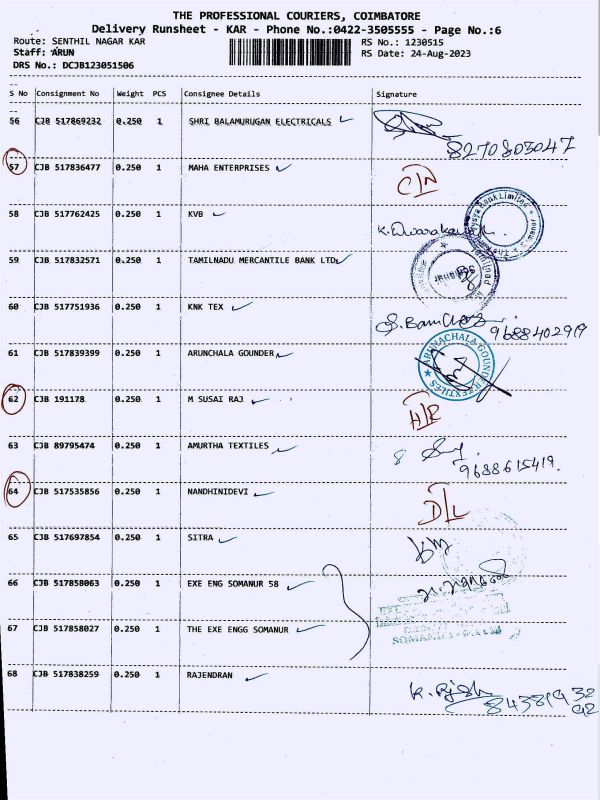 THE PROFESSIONAL COURIERS, COIMBATORE
Delivery Runsheet - KAR - Phone No.:0422-3505555 - Page No.:6
Route: SENTHIL NAGAR KAR RS No.: 1230515
Staff: ARUN RS Date: 24-Aug-2023
DRS No.: DCJB123051506
S No Consignment No Weight PCS Consignee Details Signature
56 CJB 517869232 0.250 1 SHRI BALAMURUGAN ELECTRICALS
8270803047
57 CJB 517836477 0.250 1 MAHA ENTERPRISES
58 CJB 517762425 0.250 1 KVB
59 CJB 517832571 0.250 1 TAMILNADU MERCANTILE BANK LTD
60 CJB 517751936 0.250 1 KNK TEX
9688402919
61 CJB 517839399 0.250 1 ARUNCHALA GOUNDER
ARUNACHALA GOUNDER TEXTILES
62 CJB 191178 0.250 1 M SUSAI RAJ
63 CJB 89795474 0.250 1 AMURTHA TEXTILES
9688615419.
64 CJB 517535856 0.250 1 NANDHINIDEVI
D/L
65 CJB 517697854 0.250 1 SITRA
66 CJB 517858063 0.250 1 EXE ENG SOMANUR 58
67 CJB 517858027 0.250 1 THE EXE ENGG SOMANUR
68 CJB 517838259 0.250 1 RAJENDRAN